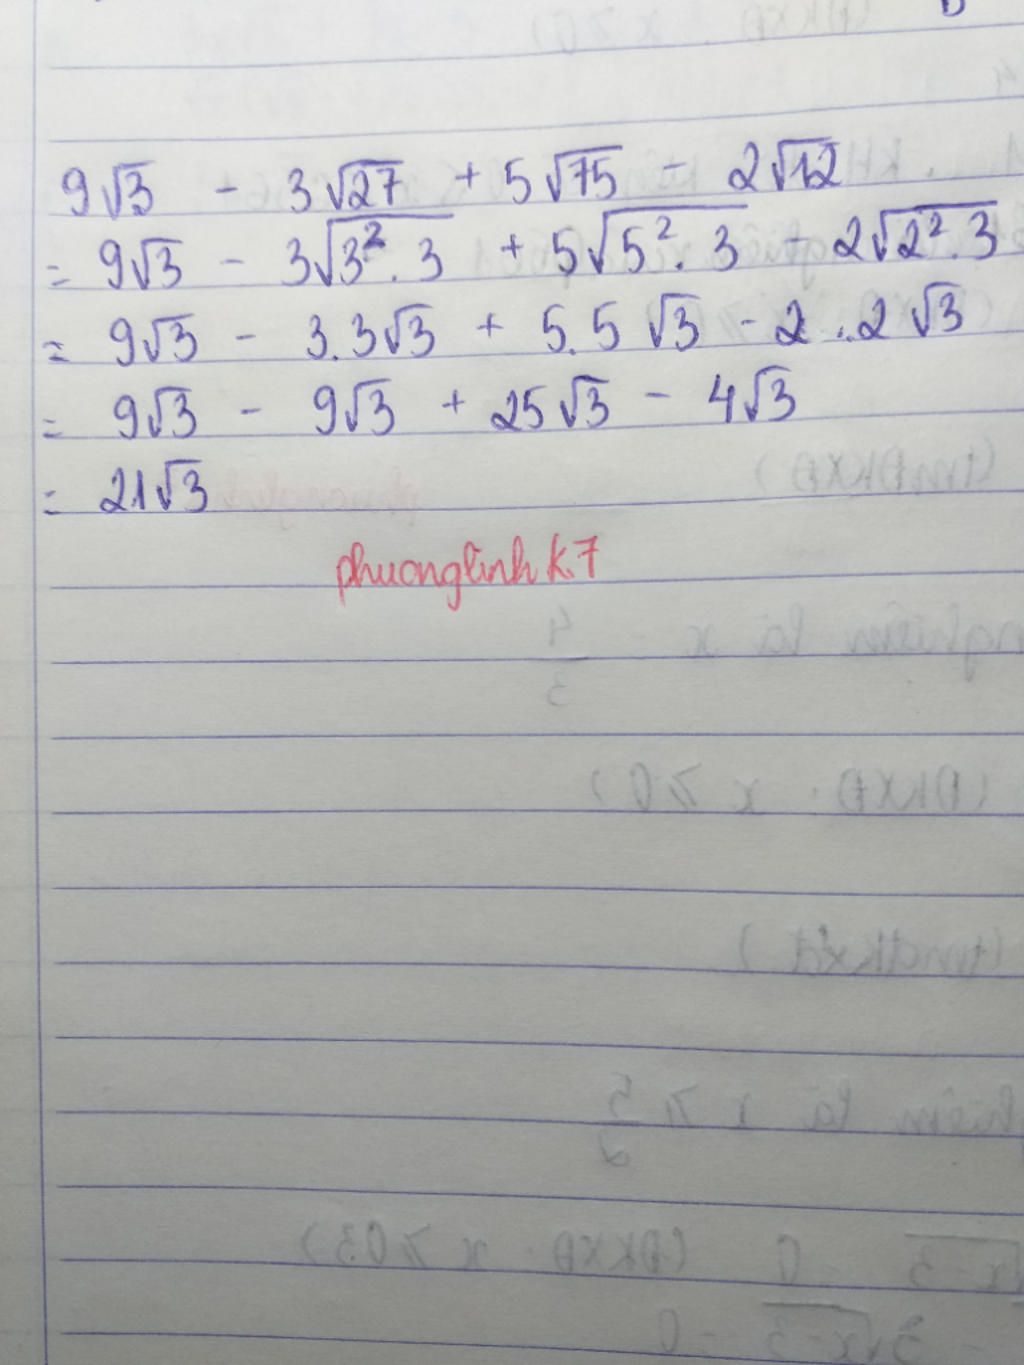 9√3 - 3√27 + 5√75 - 2√12
= 9√3 - 3√3².3 + 5√5².3 - 2√2².3
= 9√3 - 3.3√3 + 5.5√3 - 2.2√3
= 9√3 - 9√3 + 25√3 - 4√3
= 21√3
phuonglinhk7